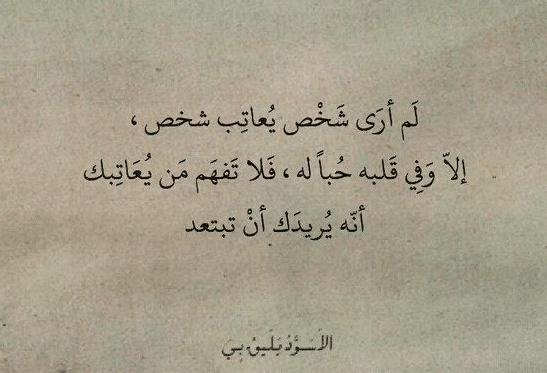 لَم أرَى شَخْص يُعاتِب شخص ،
إلاّ وَفِي قَلبه حُباً له ، فَلا تَفهَم مَن يُعَاتِبك
أنّه يُريدَك أنْ تبتعد
الأسوَدُ يَليقُ بِي